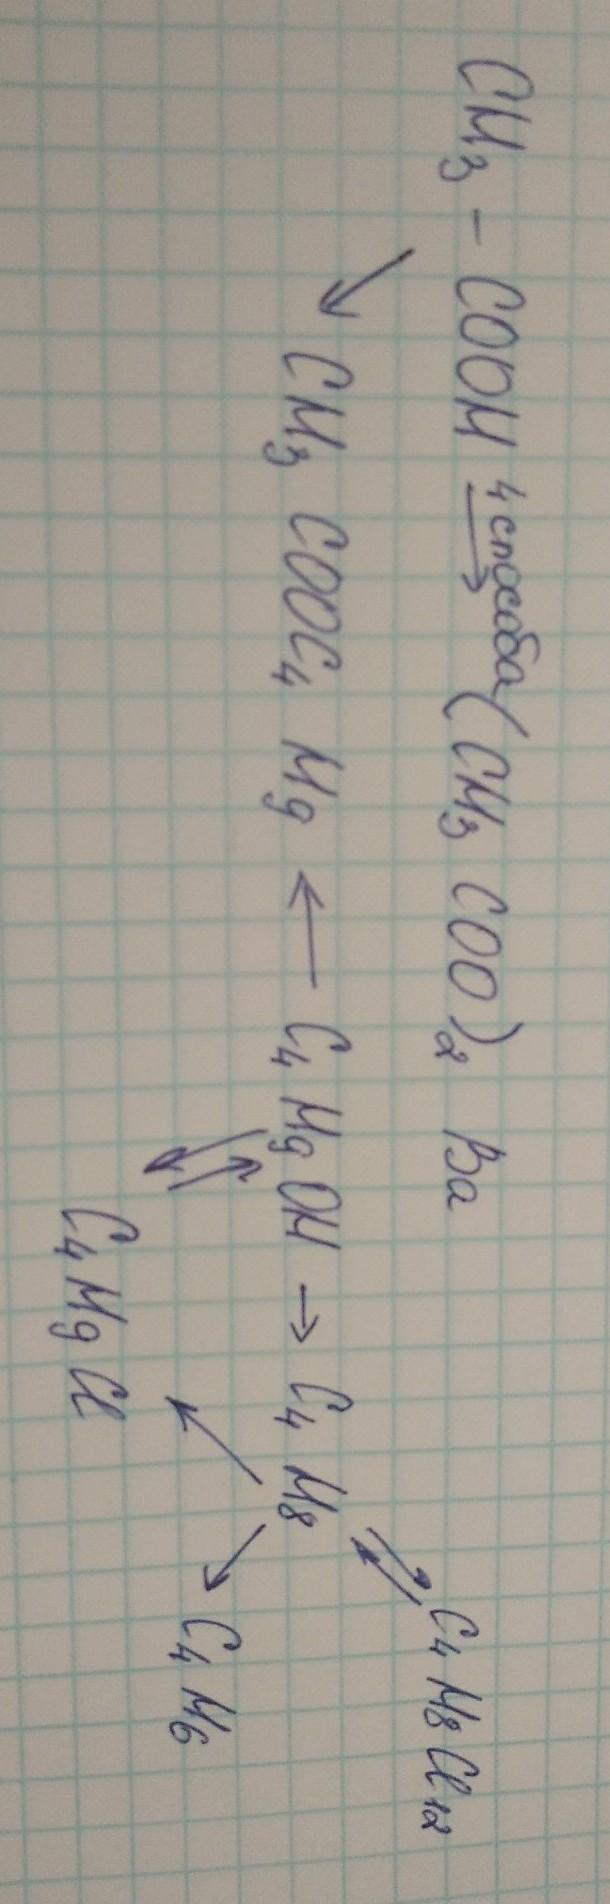 CH₃ - COOH 4 способа → (CH₃COO)₂ Ba
↘ CH₃COOC₄H₉ ← C₄H₉OH → C₄H₈ ⇄ C₄H₈Cl₂
⇅ ↙ ↘ C₄H₆
C₄H₉Cl